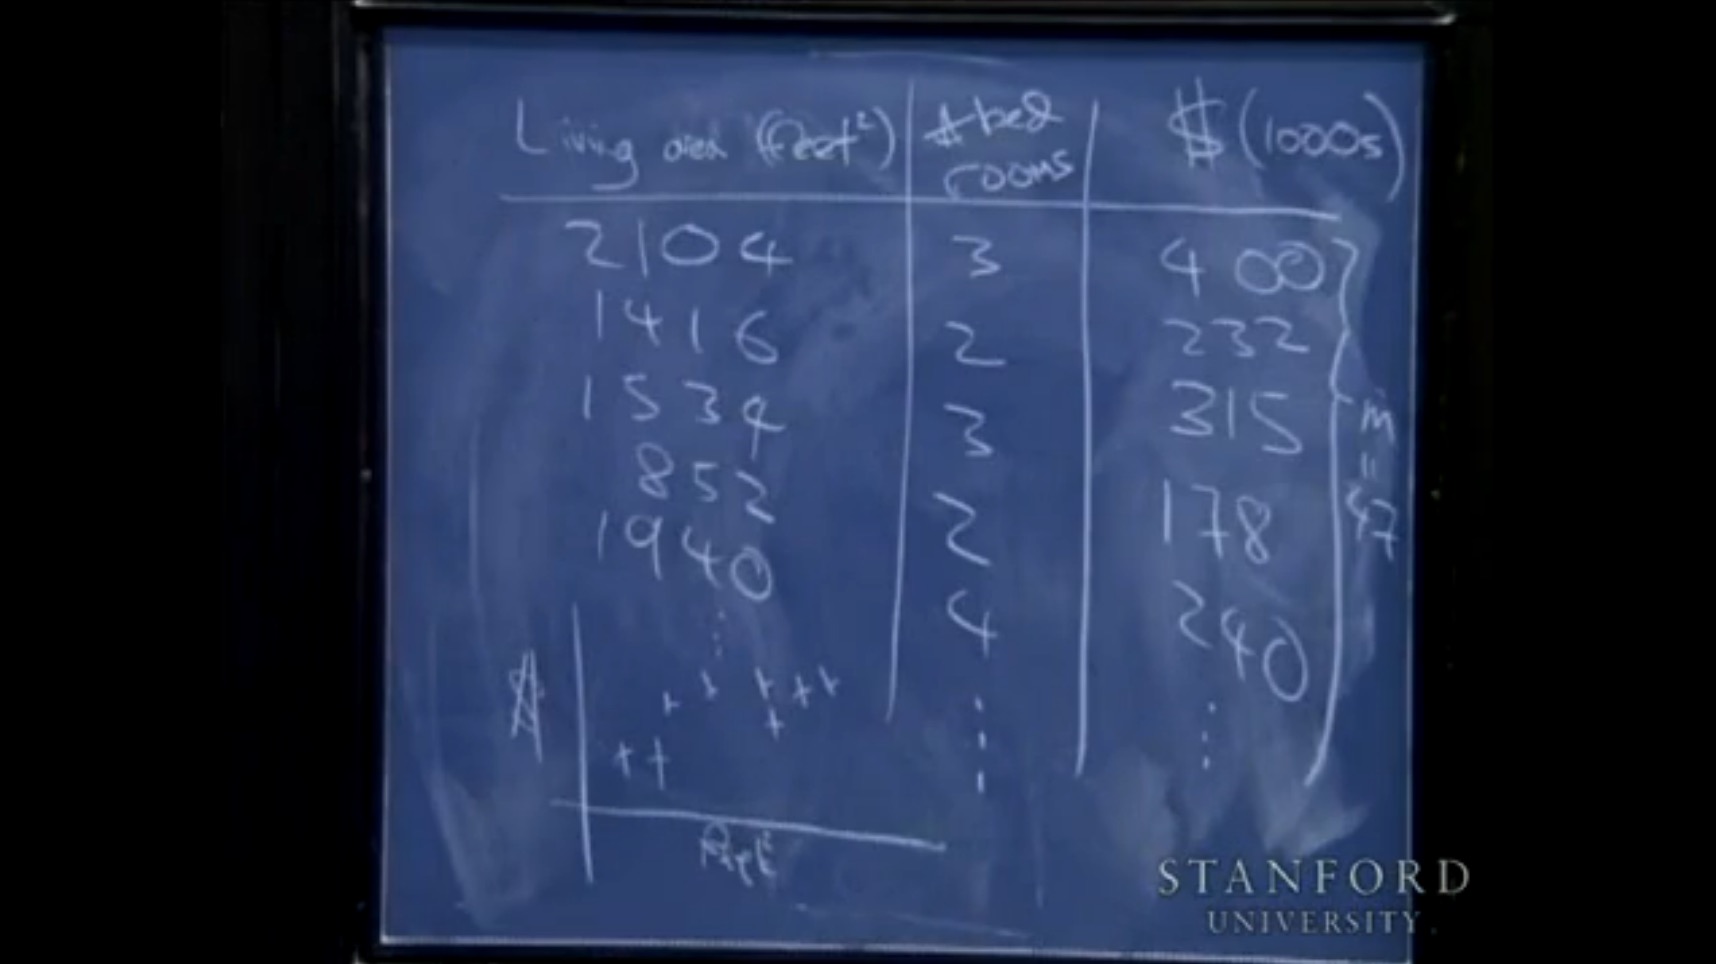 Living area (feet²) # bed rooms $ (1000s)
2104 3 400
1416 2 232
1534 3 315
852 2 178
1940 4 240
m = 47
$
feet²
STANFORD
UNIVERSITY